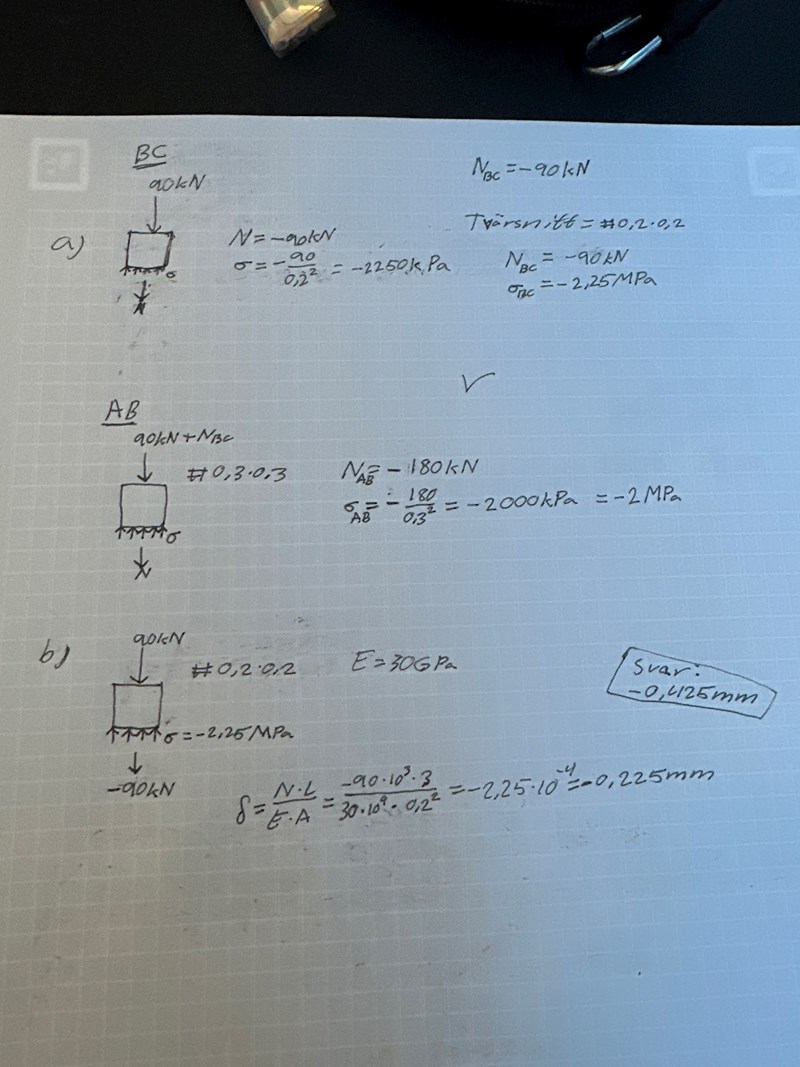 BC
90kN
N_BC = -90kN
a)
σ
N = -90kN
σ = -90/0,2² = -2250kPa
Tvärsnitt = #0,2·0,2
N_BC = -90kN
σ_BC = -2,25MPa
✓
AB
90kN + N_BC
#0,3·0,3
σ
N_AB = -180kN
σ_AB = -180/0,3² = -2000kPa = -2MPa
b)
90kN
#0,2·0,2
E = 30GPa
Svar:
-0,425mm
σ = -2,25MPa
-90kN
δ = N·L/E·A = -90·10³·3/30·10⁹·0,2² = -2,25·10⁻⁴ = -0,225mm